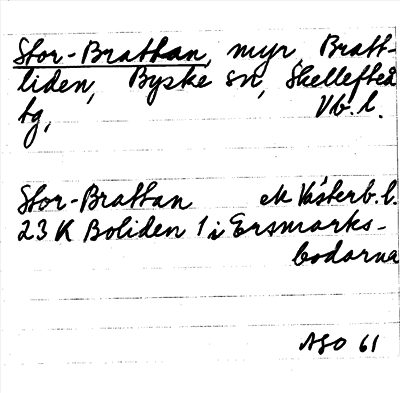 Stor-Brattan, myr, Bratt-
liden, Byske sn, Skellefteå
tg, Vb. l.
Stor-Brattan ek Västerb. l.
23 K Boliden 1 i Ersmarks-
bodarna
ASO 61